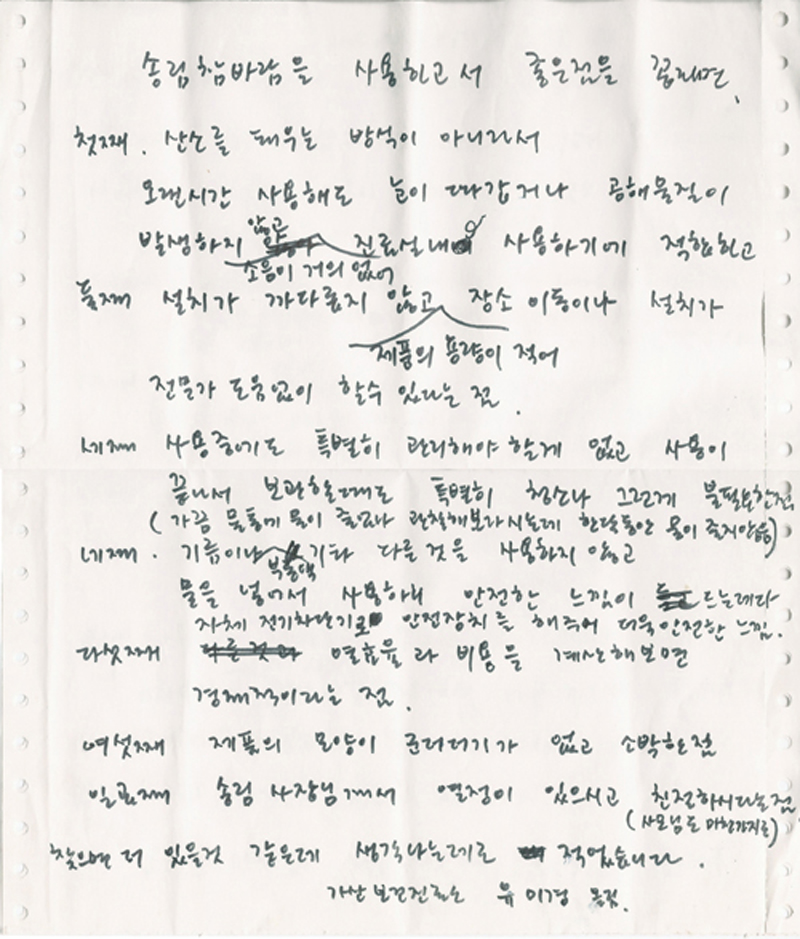 송림참바람을 사용하고서 좋은점을 꼽자면,
첫째. 산소를 태우는 방식이 아니라서
오랜시간 사용해도 눈이 따갑거나 공해물질이
발생하지 않고 진료실내 사용하기에 적합하고
소음이 거의 없어
둘째 설치가 까다롭지 않고 장소 이동이나 설치가
제품의 용량이 적어
전문가 도움없이 할수 있다는 점.
세째 사용중에도 특별히 관리해야할게 없고 사용이
끝나서 보관할때도 특별히 청소나 그런게 불필요한점
(가끔 물통에 물이 줄었나 관찰해보라시는데 한달동안 물이 줄지않음)
네째. 기름이나 기타 다른것을 사용하지 않고
부탄
물을 넣어서 사용하니 안전한 느낌이 드는데다
자체 전기차단기로 안전장치를 해주어 더욱 안전한 느낌.
다섯째 열효율과 비용을 계산해보면
경제적이라는 점.
여섯째 제품의 모양이 군더더기가 없고 소박한점
일곱째 송림 사장님께서 열정이 있으시고 친절하시다는점
(사모님도 마찬가지로)
찾으면 더 있을것 같은데 생각나는데로 적었습니다.
가산보건진료소 유미경 드림.